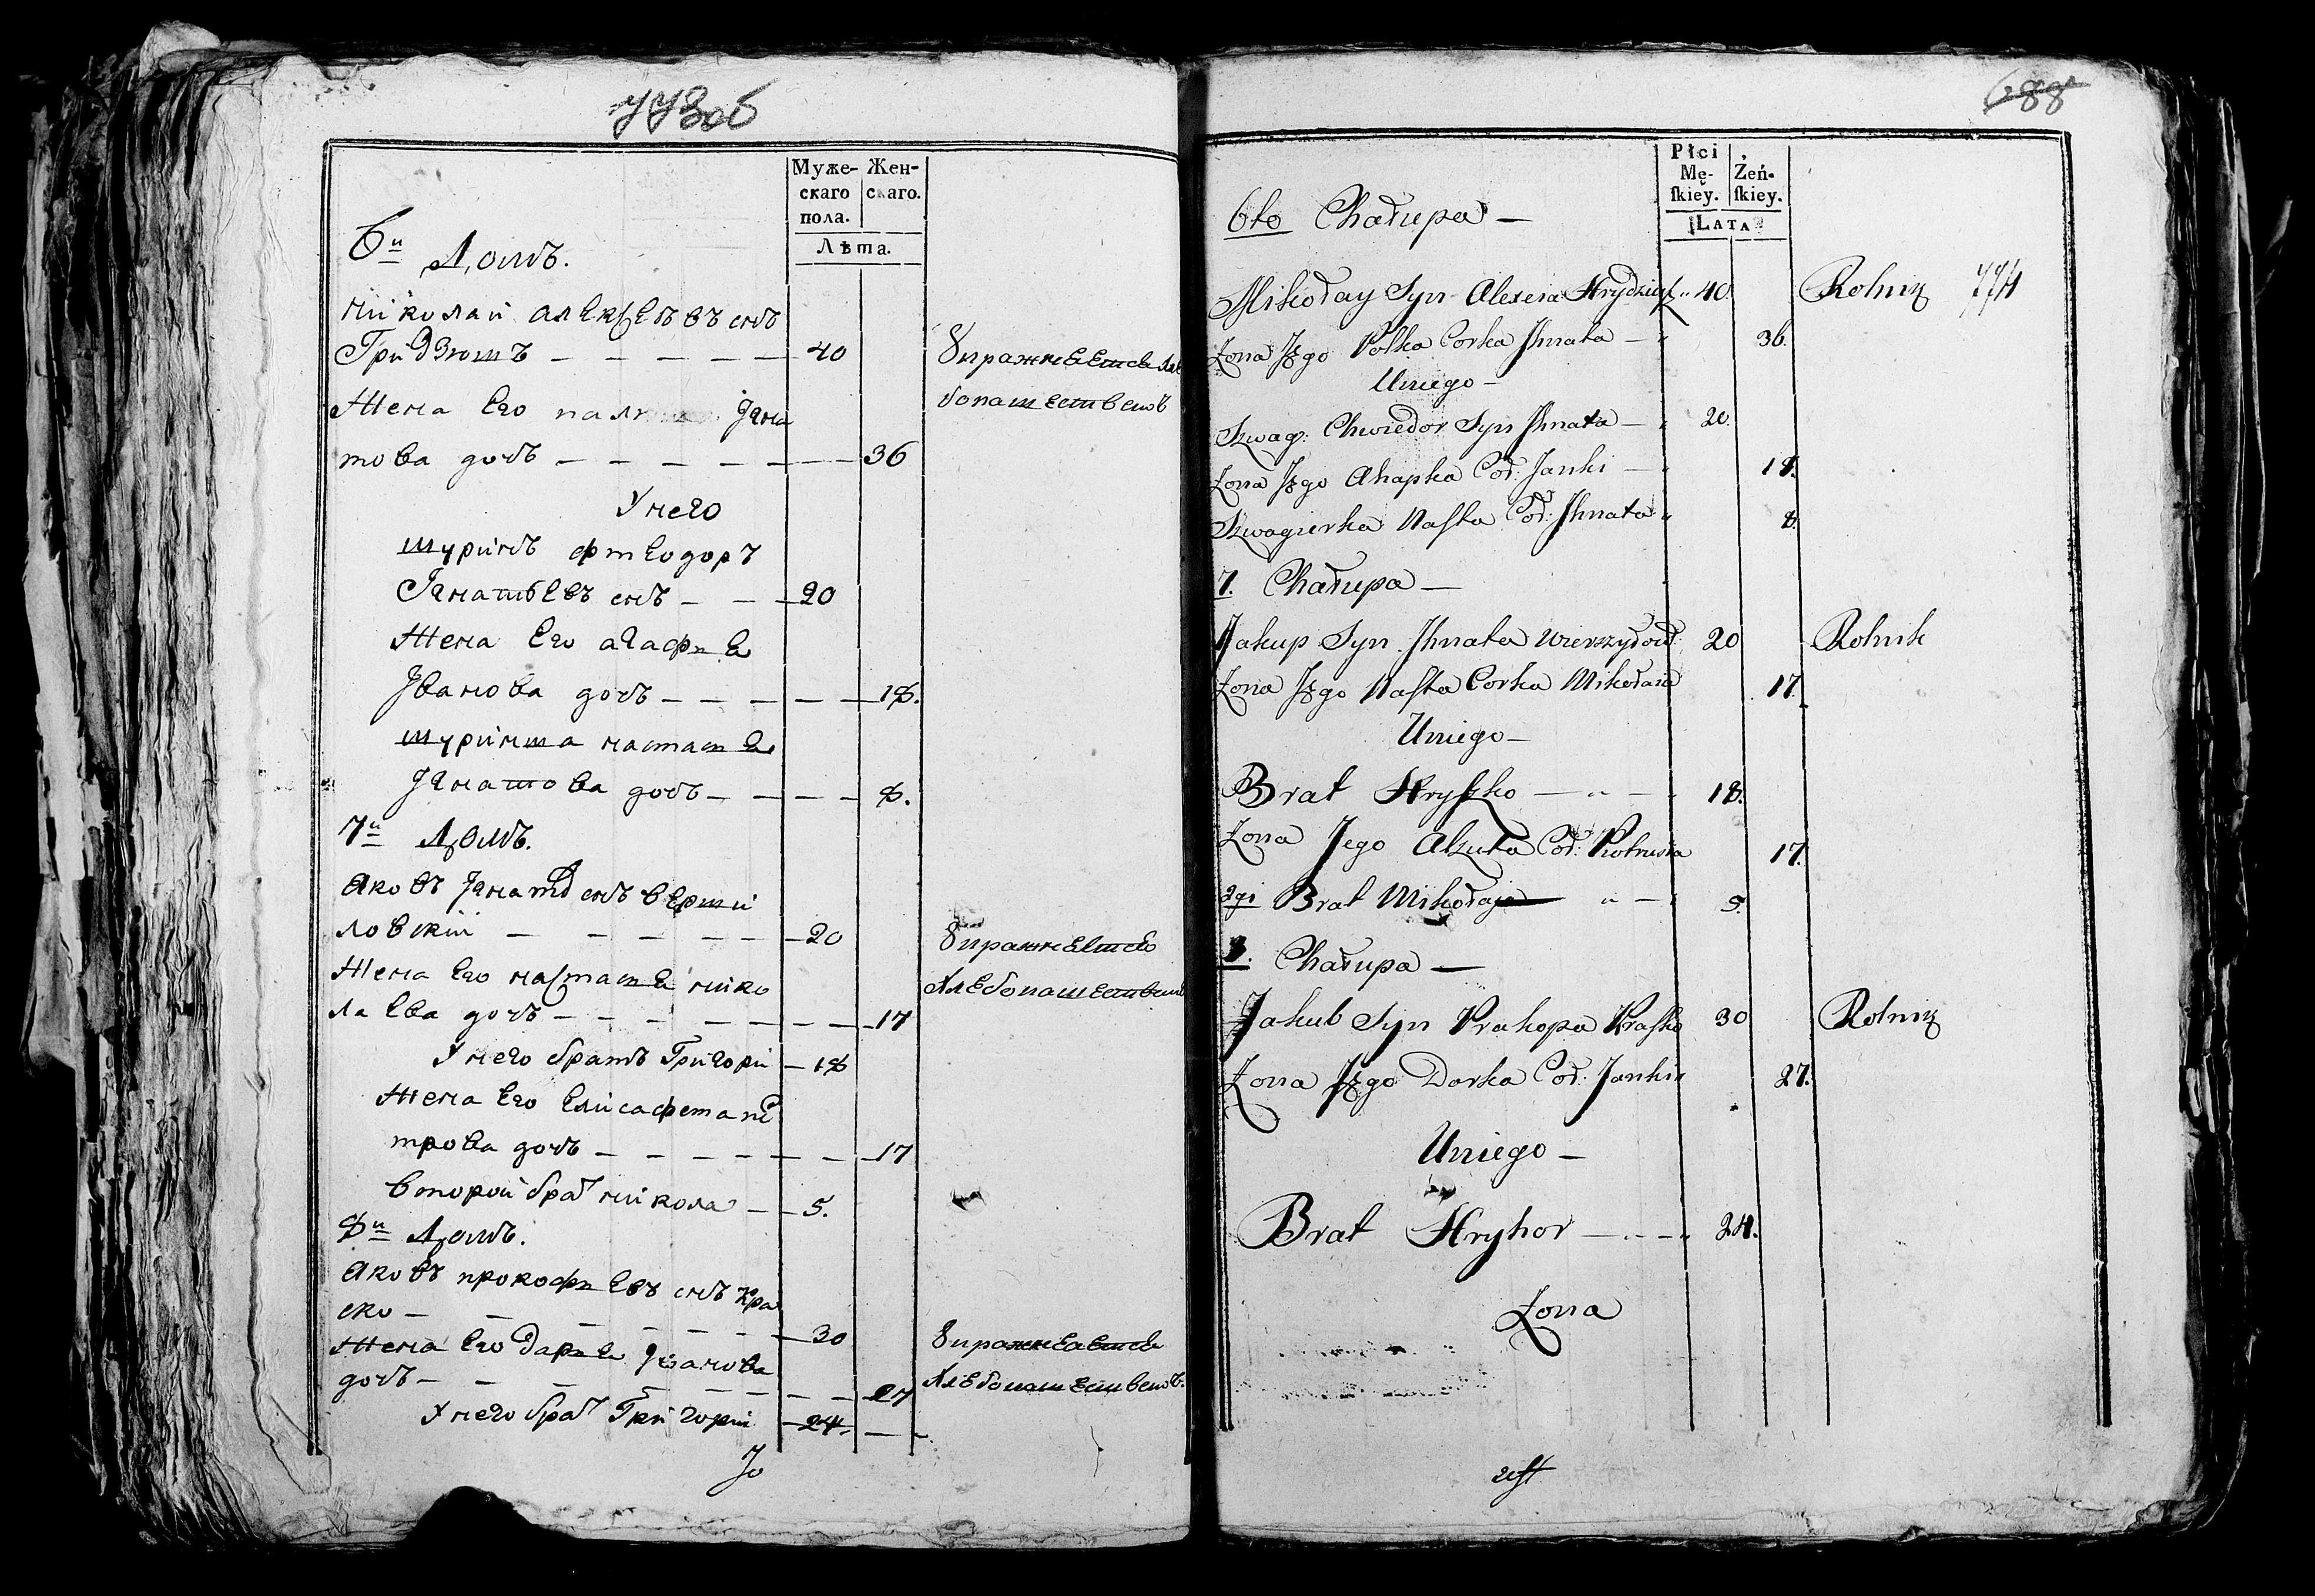 773об
Муже- Жен-
скаго скаго.
пола.
Лѣта.
6й Домъ.
николай алексѣевъ снъ
Гридзюшъ — — — — — 40 Упражняется хлѣ
бопашествомъ
Жена Его пал Игна
това дочь — — — — — 36
У него
шуринъ фтеодоръ
Игнатьевъ снъ — — 20
Жена Его агафия
Иванова дочь — — — — 18.
шуринша настасия
Игнатова дочь — — — 8.
7й Домъ.
Яковъ Игнатов снъ верши
ловский — — — — — 20 Упражняется
Жена Его настасия нико хлѣбопашествомъ
лаева дочь — — — — — 17
У него братъ Григори — 18
Жена Его Елисафета пе
трова дочь — — — — — 17
второй брат никола — 5.
8й Домъ.
Яковъ прокофиевъ снъ Кра
ско — — — — — 30 Упражняется
Жена Его Дария Иванова
дочь — — — — — 27 хлѣбопашествомъ.
У него брат Григорий — 24.
688
Płci
Mę- Żeń-
ſkiey. ſkiey.
LATA
6to Chałupa —
Mikołay Syn Alexeia 40. Rolnik 774
Żona Jego Połka Corka Jhnata — 36.
Uniego —
Szwag: Chwiedor Syn Jhnata — 20.
Żona Jego Ahapka Cór: Janki — 18.
Szwagierka Naſta Cór: Jhnata 8.
7. Chałupa —
Jakup Syn Jhnata Wierszyłow: 20 Rolnik
Żona Jego Naſta Corka Mikołaia 17.
Uniego —
Brat Hryſzko — 18.
Żona Jego Alzuta Cór: Piotrusia 17.
2gi Brat Mikołaja — 5.
8. Chałupa —
Jakub Syn Prakopa Kraſko 30 Rolnik
Żona Jego Darka Cór: Janki 27.
Uniego —
Brat Hryhor — 24.
Żona